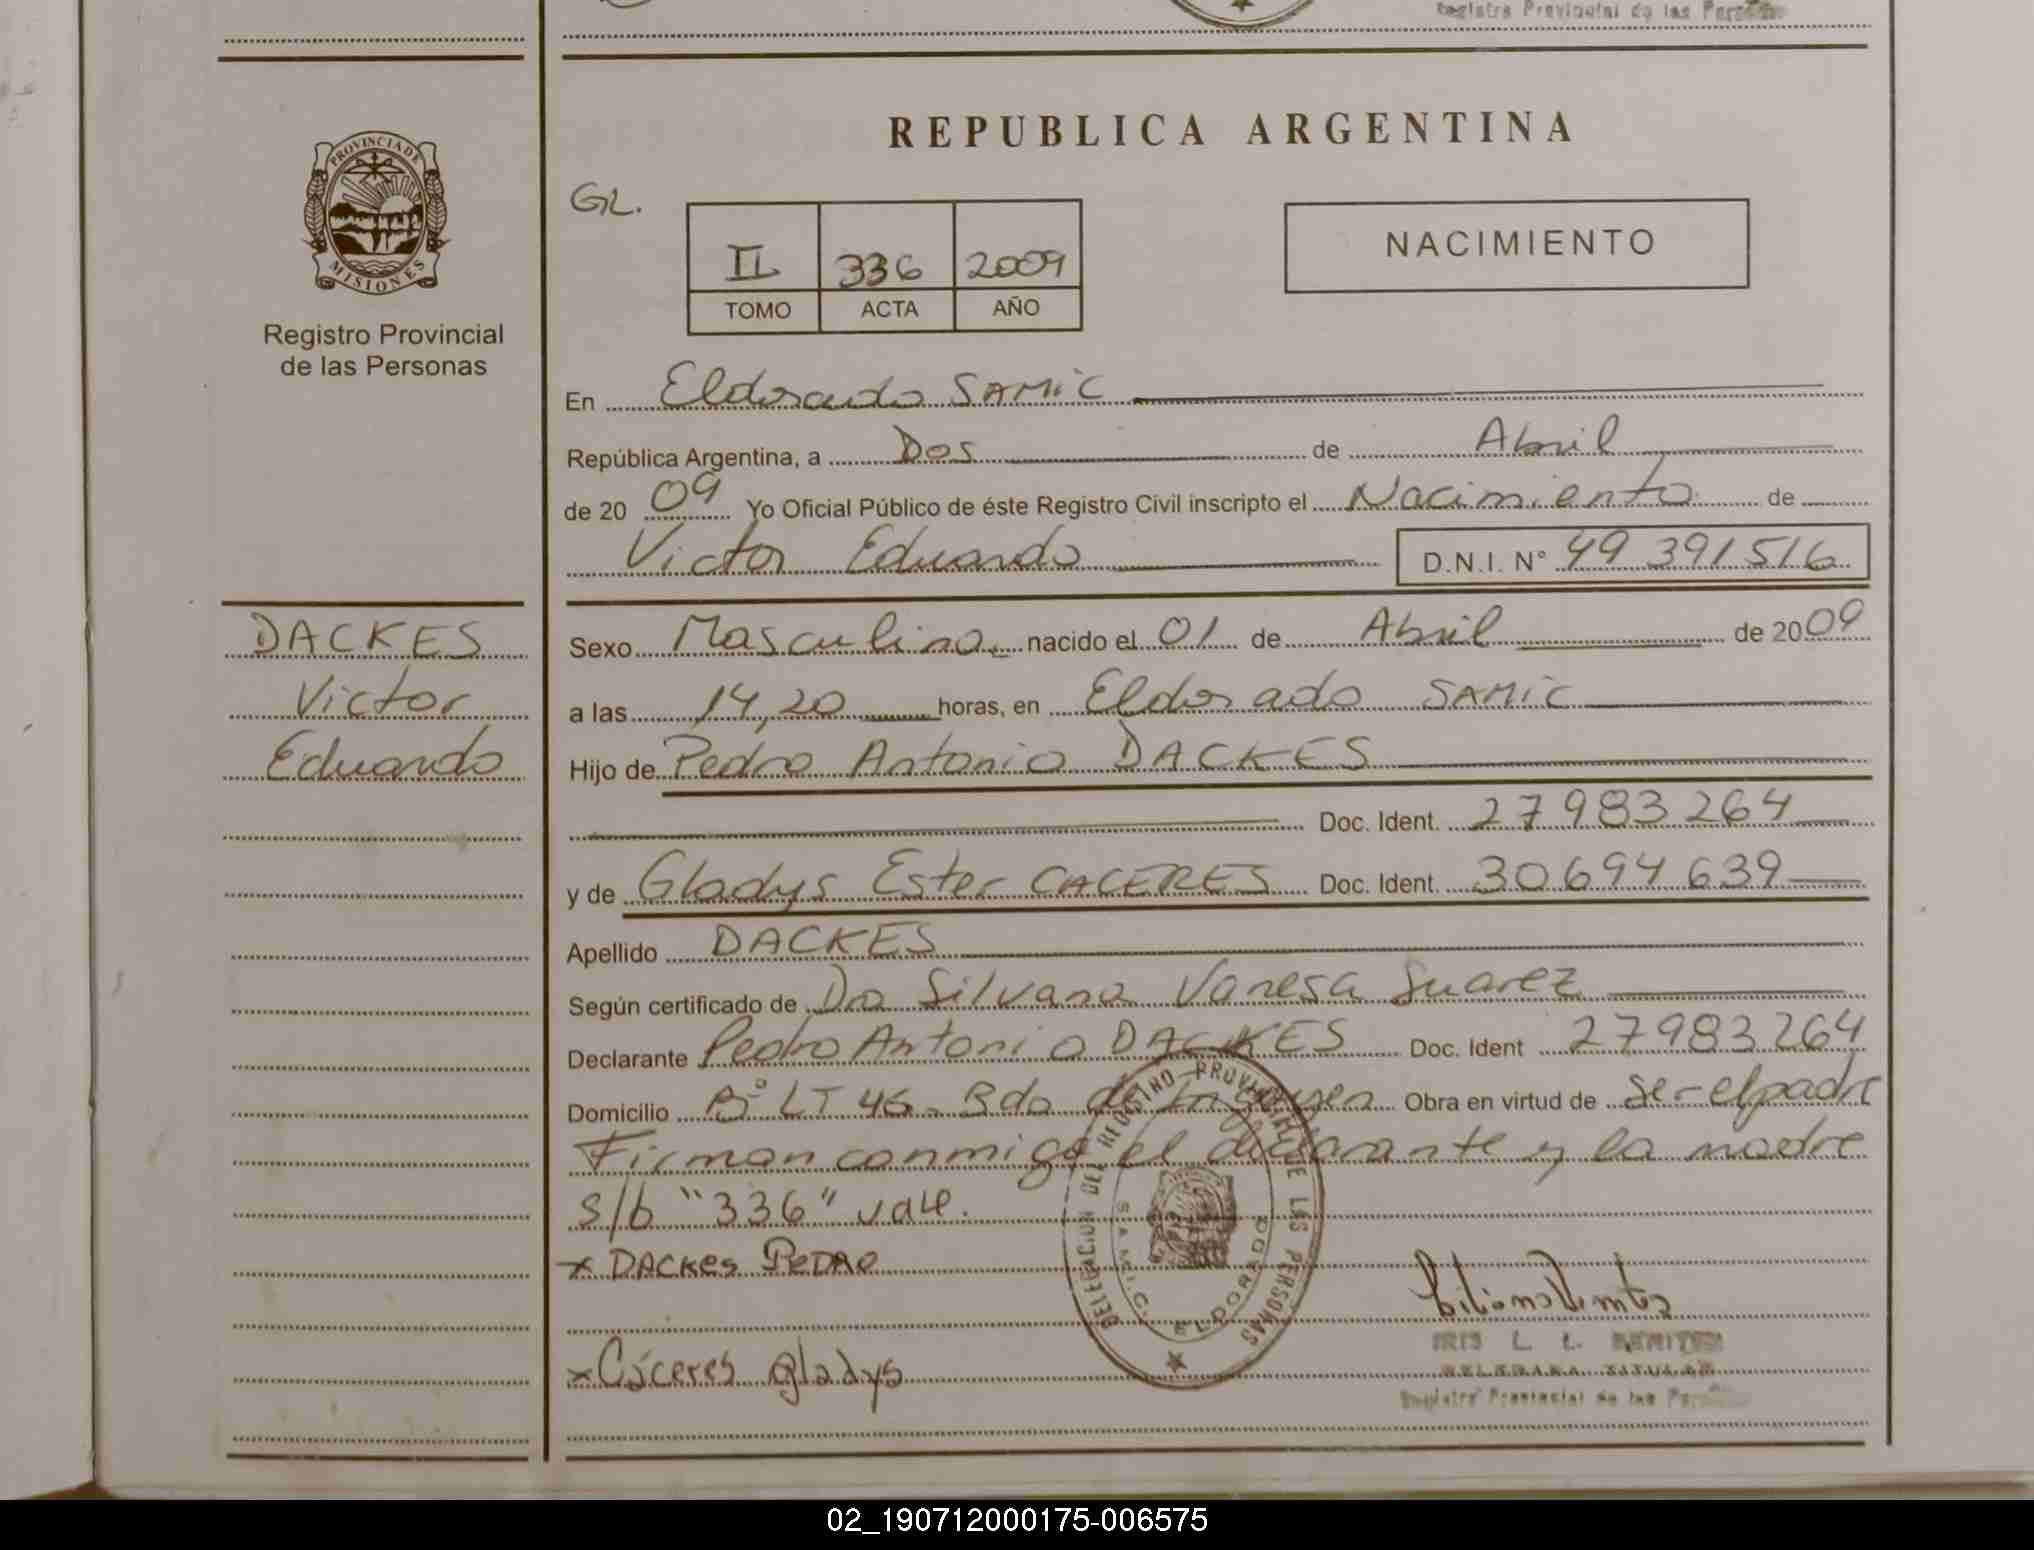 Registro Provincial de las Personas
REPUBLICA ARGENTINA
PROVINCIA DE
MISIONES
Registro Provincial
de las Personas
GR.
II 336 2009
TOMO ACTA AÑO
NACIMIENTO
En Eldorado SAMIC
República Argentina, a Dos de Abril
de 2009 Yo Oficial Público de éste Registro Civil inscripto el Nacimiento de
Victor Eduardo D.N.I. N° 49 391 516
DACKES
Victor
Eduardo
Sexo Masculino nacido el 01 de Abril de 2009
a las 14,20 horas, en Eldorado SAMIC
Hijo de Pedro Antonio DACKES
Doc. Ident. 27 983 264
y de Gladys Ester CACERES Doc. Ident. 30 694 639
Apellido DACKES
Según certificado de Dra Silvana Vanesa Suarez
Declarante Pedro Antonio DACKES Doc. Ident 27 983 264
Domicilio B° LT 46 - Bdo de Irigoyen Obra en virtud de ser el padre
Firman conmigo el declarante y la madre
s/b "336" vale.
x DACKES PEDRO
x Cáceres gladys
DELEGACION DEL REGISTRO PROVINCIAL DE LAS PERSONAS
S.A.M.I.C. ELDORADO
IRIS L. L. BENITEZ
DELEGADA TITULAR
Registro Provincial de las Personas
02_190712000175-006575